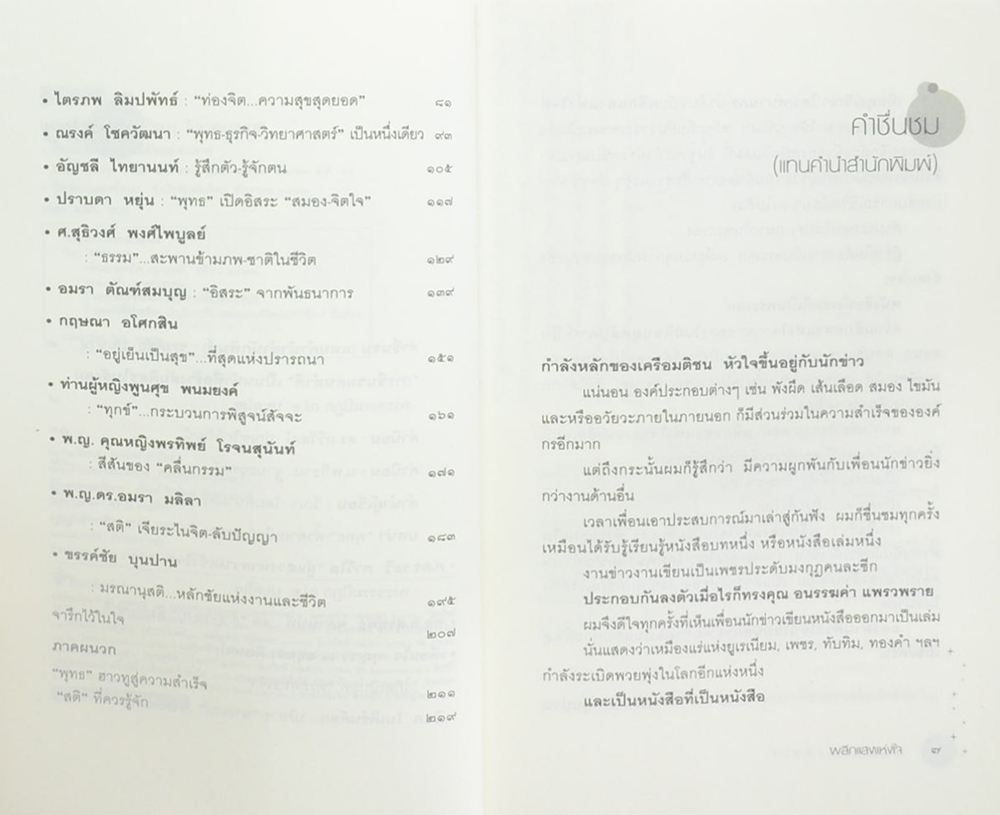 • ไตรภพ ลิมปพัทธ์ : “ท่องจิต...ความสุขสุดยอด” ๘๑
• ณรงค์ โชควัฒนา : “พุทธ-ธุรกิจ-วิทยาศาสตร์” เป็นหนึ่งเดียว ๙๓
• อัญชลี ไทยานนท์ : รู้สึกตัว-รู้จักตน ๑๐๕
• ปราบดา หยุ่น : “พุทธ” เปิดอิสระ “สมอง-จิตใจ” ๑๑๗
• ศ.สุธิวงศ์ พงศ์ไพบูลย์
: “ธรรม”...สะพานข้ามภพ-ชาติในชีวิต ๑๒๙
• อมรา ตัณฑ์สมบุญ : “อิสระ” จากพันธนาการ ๑๓๙
• กฤษณา อโศกสิน
: “อยู่เย็นเป็นสุข”...ที่สุดแห่งปรารถนา ๑๕๑
• ท่านผู้หญิงพูนศุข พนมยงค์
: “ทุกข์”...กระบวนการพิสูจน์สัจจะ ๑๖๑
• พ.ญ. คุณหญิงพรทิพย์ โรจนสุนันท์
: สีสันของ “คลื่นกรรม” ๑๗๑
• พ.ญ.ดร.อมรา มลิลา
: “สติ” เจียระไนจิต-ลับปัญญา ๑๘๓
• ขรรค์ชัย บุนปาน
: มรณานุสติ...หลักชัยแห่งงานและชีวิต ๑๙๕
จารึกไว้ในใจ ๒๐๗
ภาคผนวก
“พุทธ” ฮาวทูสู่ความสำเร็จ ๒๑๑
“สติ” ที่ควรรู้จัก ๒๑๙
คำชื่นชม
(แทนคำนำสำนักพิมพ์)
กำลังหลักของเครือมติชน หัวใจขึ้นอยู่กับนักข่าว
แน่นอน องค์ประกอบต่างๆ เช่น พังผืด เส้นเลือด สมอง ไขมัน
และหรืออวัยวะภายในภายนอก ก็มีส่วนร่วมในความสำเร็จขององค์
กรอีกมาก
แต่ถึงกระนั้นผมก็รู้สึกว่า มีความผูกพันกับเพื่อนนักข่าวยิ่ง
กว่างานด้านอื่น
เวลาเพื่อนเอาประสบการณ์มาเล่าสู่กันฟัง ผมก็ชื่นชมทุกครั้ง
เหมือนได้รับรู้เรียนรู้หนังสือบทหนึ่ง หรือหนังสือเล่มหนึ่ง
งานข่าวงานเขียนเป็นเพชรประดับมงกุฎคนละซีก
ประกอบกันลงตัวเมื่อไรก็ทรงคุณ อนรรฆค่า แพรวพราย
ผมจึงดีใจทุกครั้งที่เห็นเพื่อนนักข่าวเขียนหนังสือออกมาเป็นเล่ม
นั่นแสดงว่าเหมืองแร่แห่งยูเรเนียม, เพชร, ทับทิม, ทองคำ ฯลฯ
กำลังระเบิดพวยพุ่งในโลกอีกแห่งหนึ่ง
และเป็นหนังสือที่เป็นหนังสือ
ผลึกแสงแห่งใจ ๗